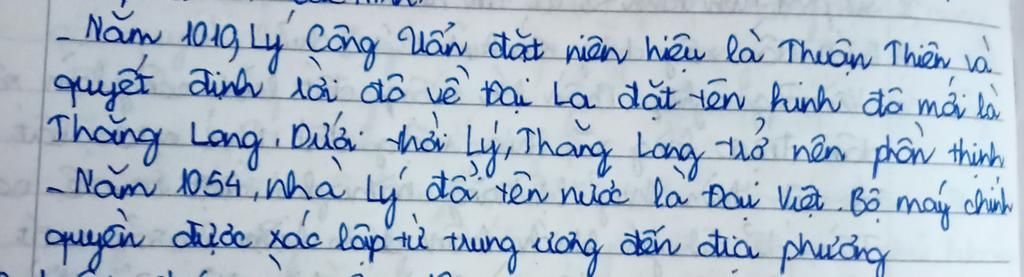 - Năm 1019, Lý Công Uẩn đặt niên hiệu là Thuận Thiên và
quyết định rời đô về Đại La đặt tên kinh đô mới là
Thăng Long. Dưới thời Lý, Thăng Long trở nên phồn thịnh
- Năm 1054, nhà Lý đổi tên nước là Đại Việt. Bộ máy chính
quyền được xác lập từ trung ương đến địa phương